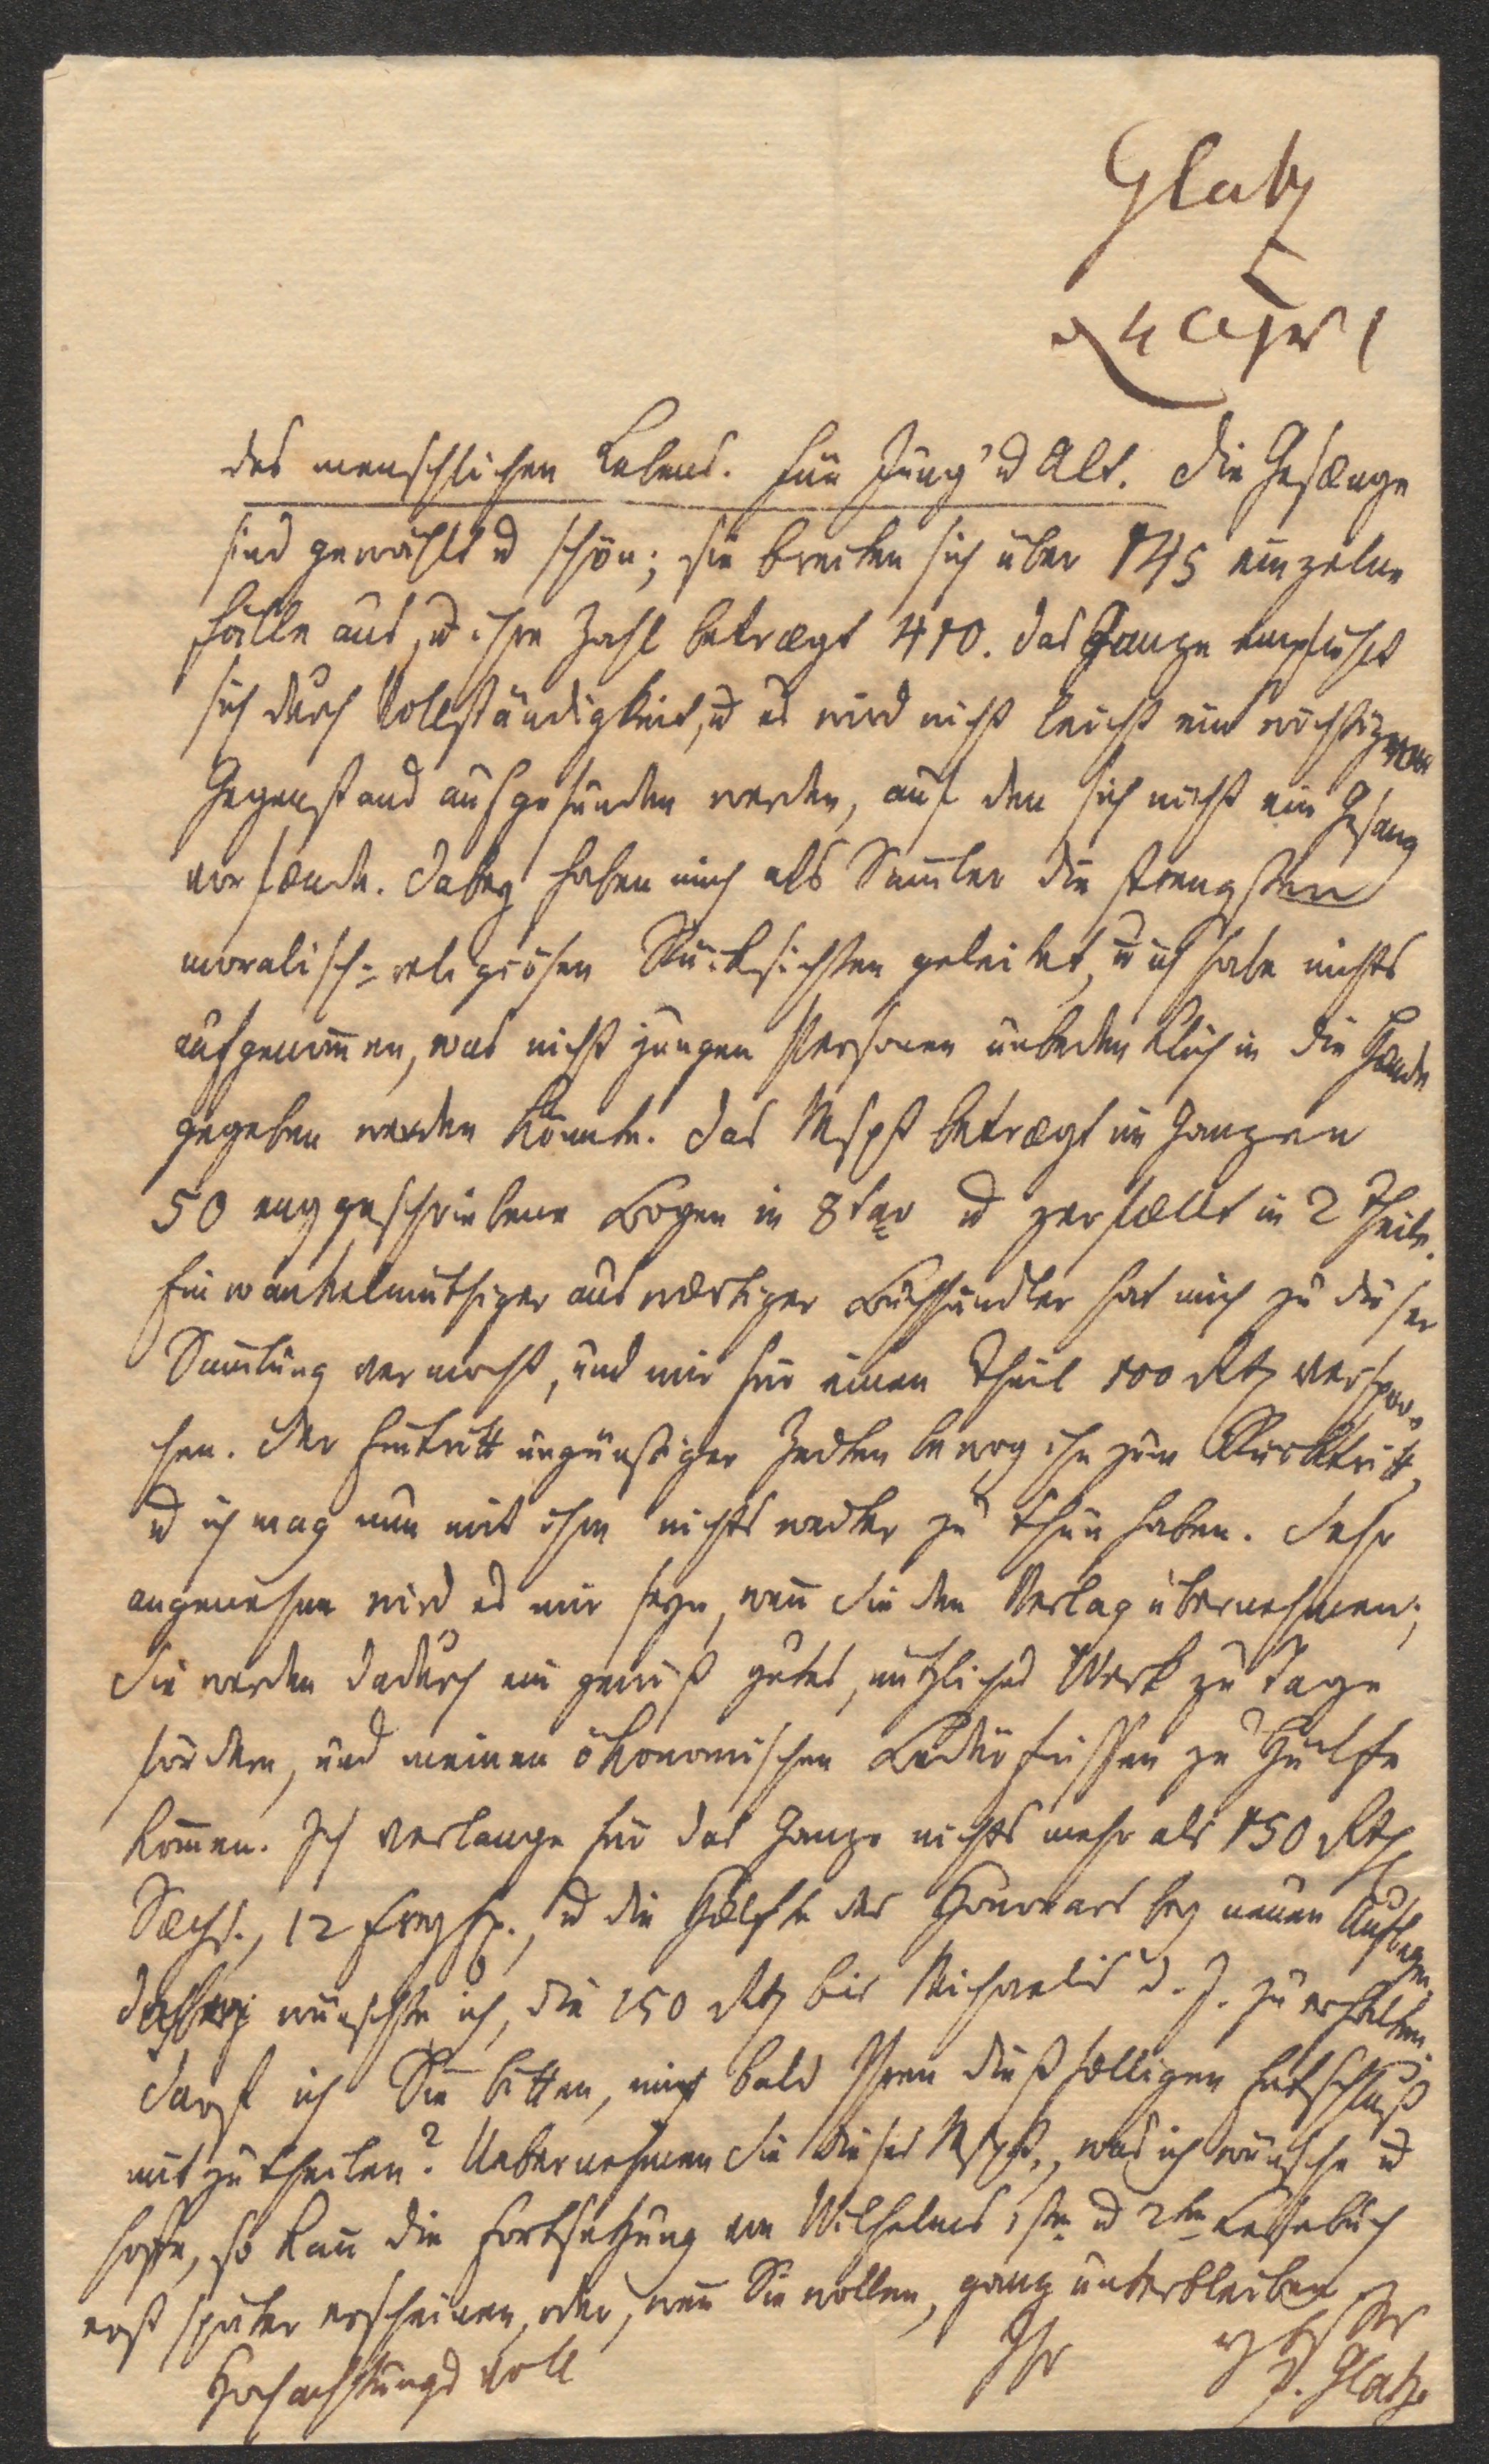 Glatz
des menschlichen Lebens. Für Jung' u Alt. Die Gesænge
sind gewählt u schön; sie breiten sich über 145 einzelne
Fälle aus, u ihre Zahl betrægt 410. Das Ganze empfiehlt
sich durch Vollständigkeit, u es wird nicht leicht ein wichtiger
Gegenstand aufgefunden werden, auf den sich nicht ein Gesang
vorfænde. Dabey haben mich als Sam̅ler die strengsten
moralisch-religiösen Rücksichten geleitet, u ich habe nichts
aufgenom̅en, was nicht jungen Personen unbedenklich in die Hænde
gegeben werden könnte. Das Mspt betrægt im Ganzen
50 enggeschriebene Bogen in 8tav u zerfællt in 2 Theile.
Ein wankelmüthiger auswærtiger Buchhändler hat mich zu dieser
Sam̅lung vermocht, und mir für einen Theil 100 Rth verspro-
chen. Der Eintritt ungünstiger Zeiten bewog ihn zum Rücktritt,
u ich mag nun mit ihm nichts weiter zu thun haben. Sehr
angenehm wird es mir seyn, wen̅ Sie den Verlag übernehmen;
Sie werden dadurch ein gewiß gutes, nützliches Werk zu Tage
fördern, und meinen ökonomischen Bedürfnissen zu Hülfe
kom̅en. Ich verlange für das Ganze nichts mehr als 150 Rth
Sæchs., 12 Freyex., u die Hælfte des Honorars bey neuen Auflagen.
wünschte ich, die 150 Rth bis Michaelis d. J. zu erhalten.
Darf ich Sie bitten, mir bald Ihren dießfælligen Entschluß
mitzutheilen? Uebernehmen Sie dieses Mspt., was ich wünsche u
hoffe, so kan̅ die Fortsetzung von Wilhelms 1stn u 2tn Lesebuch
erst später erscheinen, oder, wen̅ Sie wollen, ganz unterbleiben
Hochachtungsvoll Ihr
J. Glatz